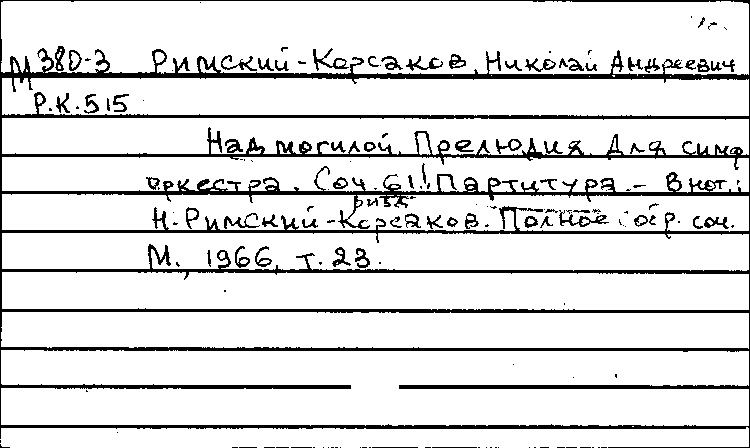 М 380-3 Римский-Корсаков, Николай Андреевич
Р.К.515
Над могилой. Прелюдия. Для симф
оркестра. Соч. 61! Партитура. - В нот.:
Н. Римский-Корсаков. Полное собр. соч.
М., 1966, т. 23.